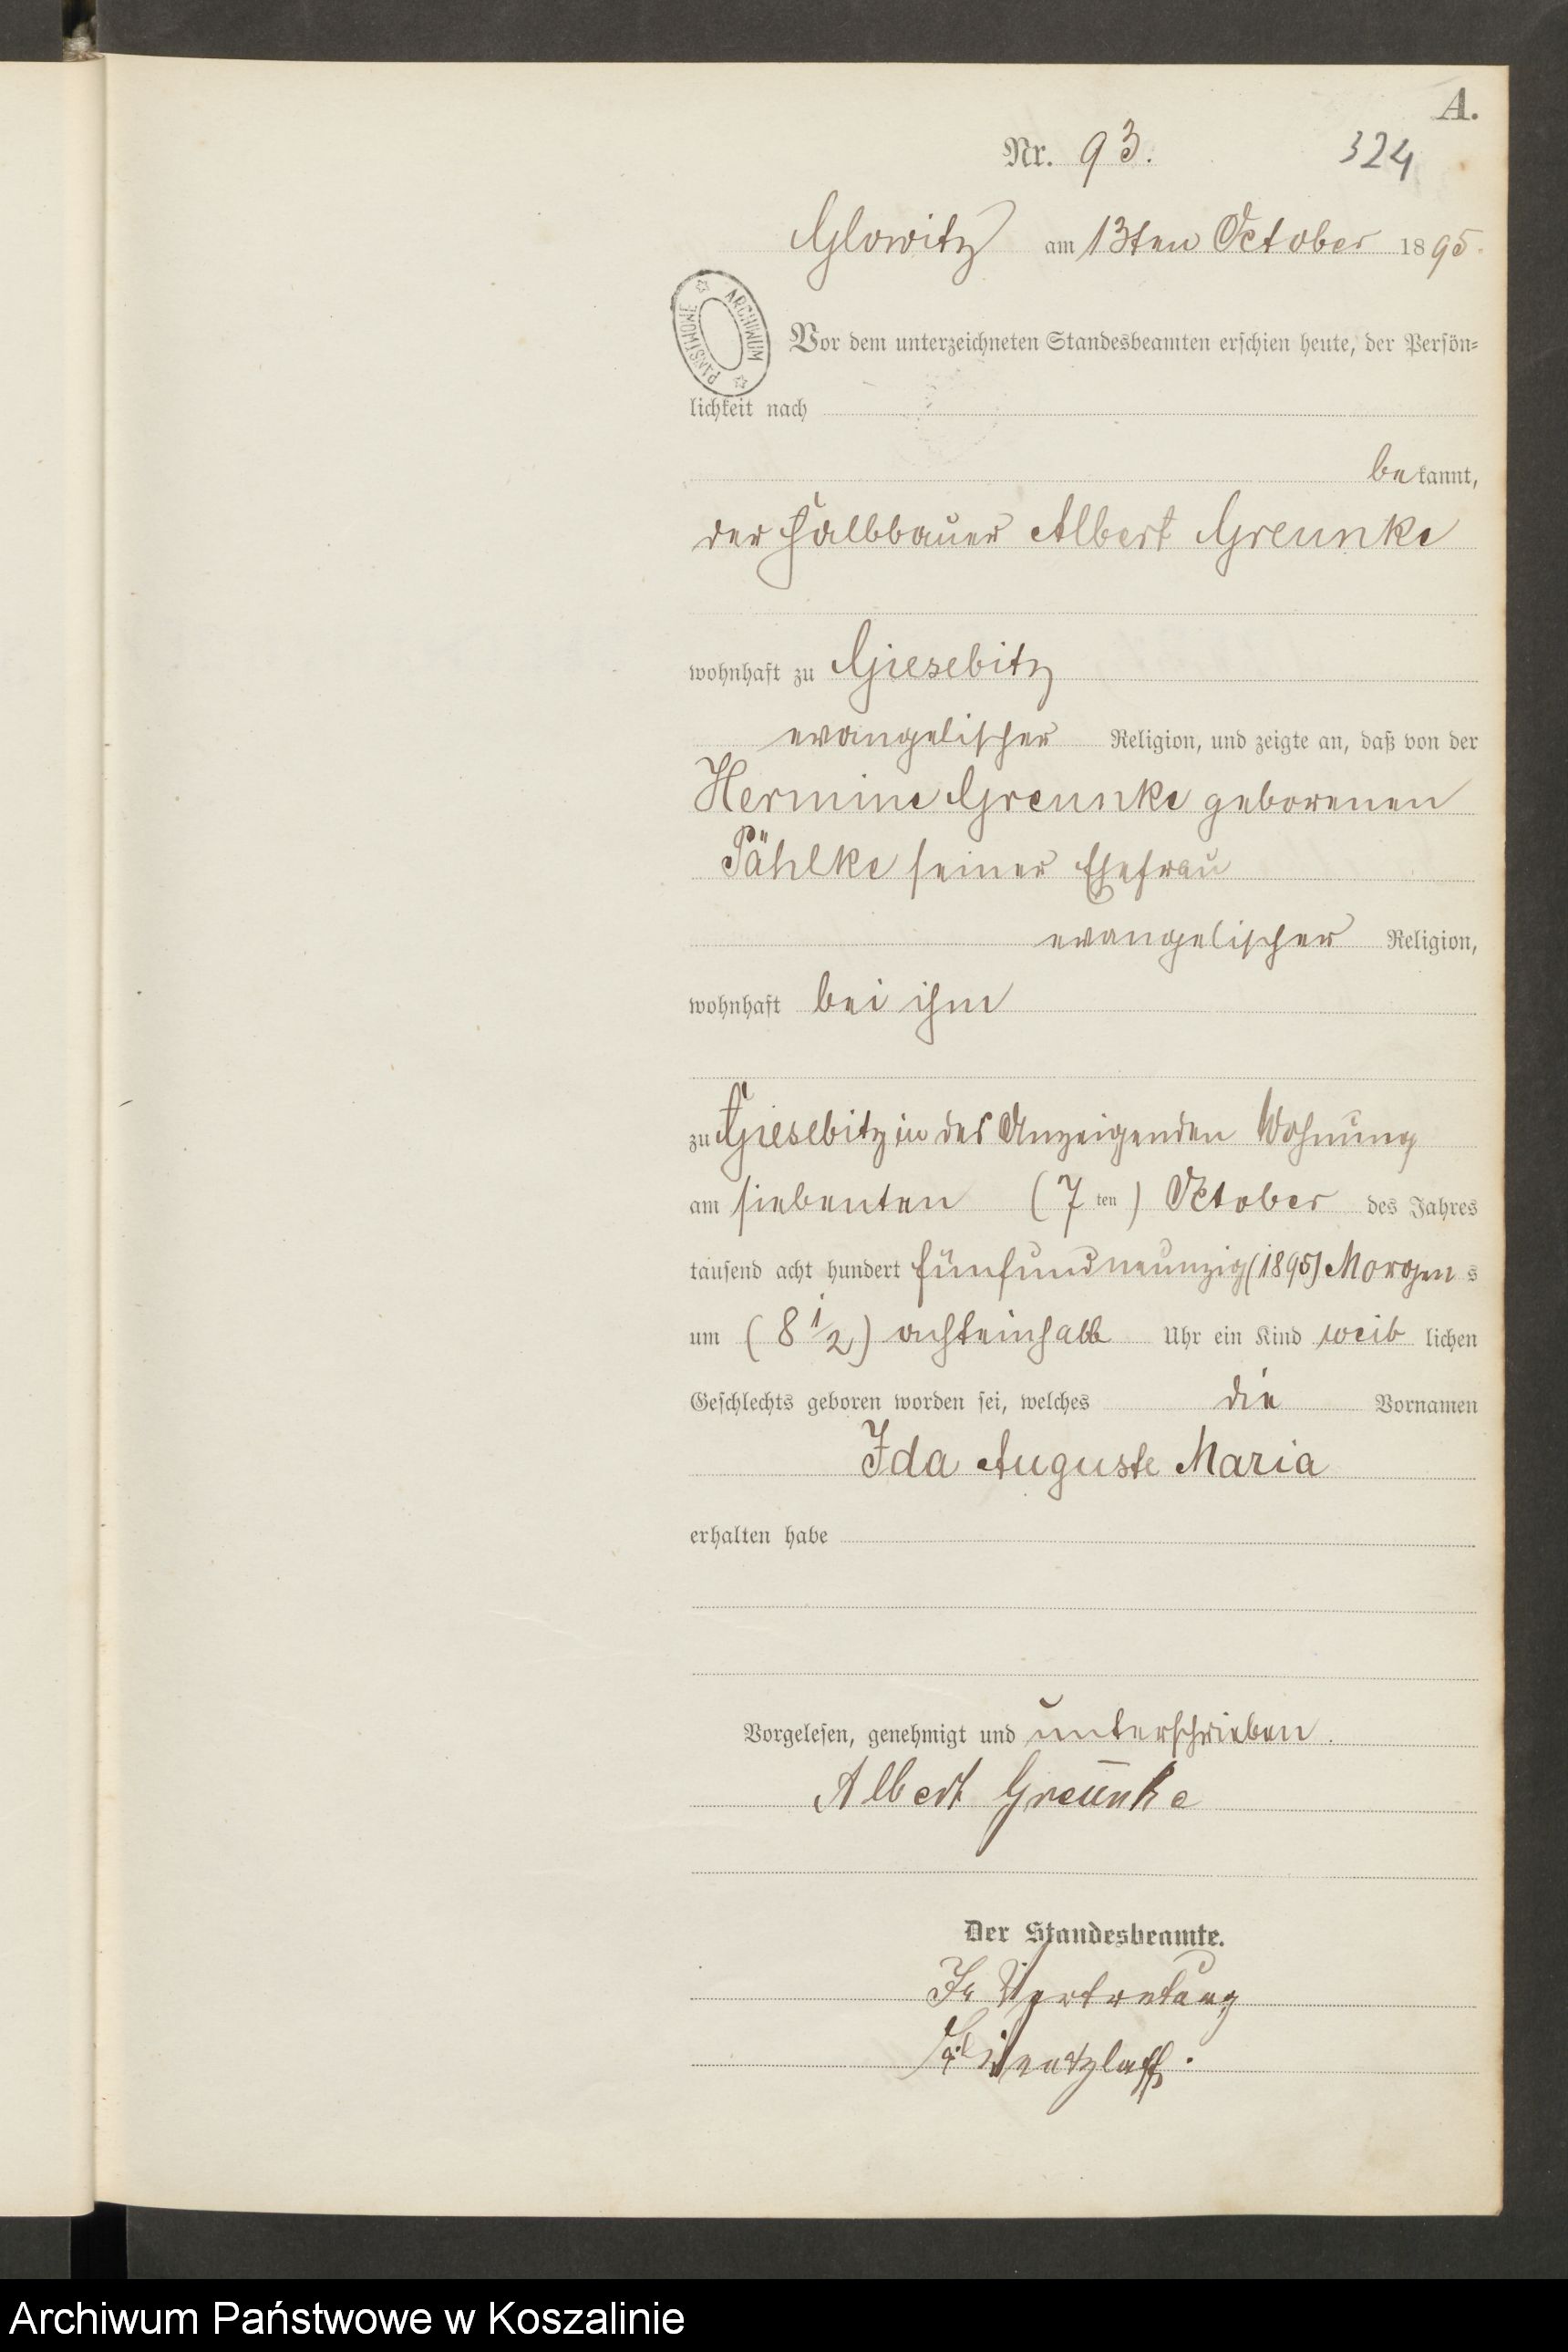 A.
Nr. 93. 324
Glowitz am 13ten October 1895.
ARCHIWUM PAŃSTWOWE
Vor dem unterzeichneten Standesbeamten erschien heute, der Persön-
lichkeit nach
bekannt,
der Halbbauer Albert Greunke
wohnhaft zu Giesebitz
evangelischer Religion, und zeigte an, daß von der
Hermine Greunke geborenen
Pählke seiner Ehefrau
evangelischer Religion,
wohnhaft bei ihm
zu Giesebitz in des Anzeigenden Wohnung
am siebenten (7ten) October des Jahres
tausend acht hundert fünfundneunzig (1895) Morgens
um (8 1/2) achteinhalb Uhr ein Kind weiblichen
Geschlechts geboren worden sei, welches die Vornamen
Ida Auguste Maria
erhalten habe
Vorgelesen, genehmigt und unterschrieben.
Albert Greunke
Der Standesbeamte.
In Vertretung
Archiwum Państwowe w Koszalinie